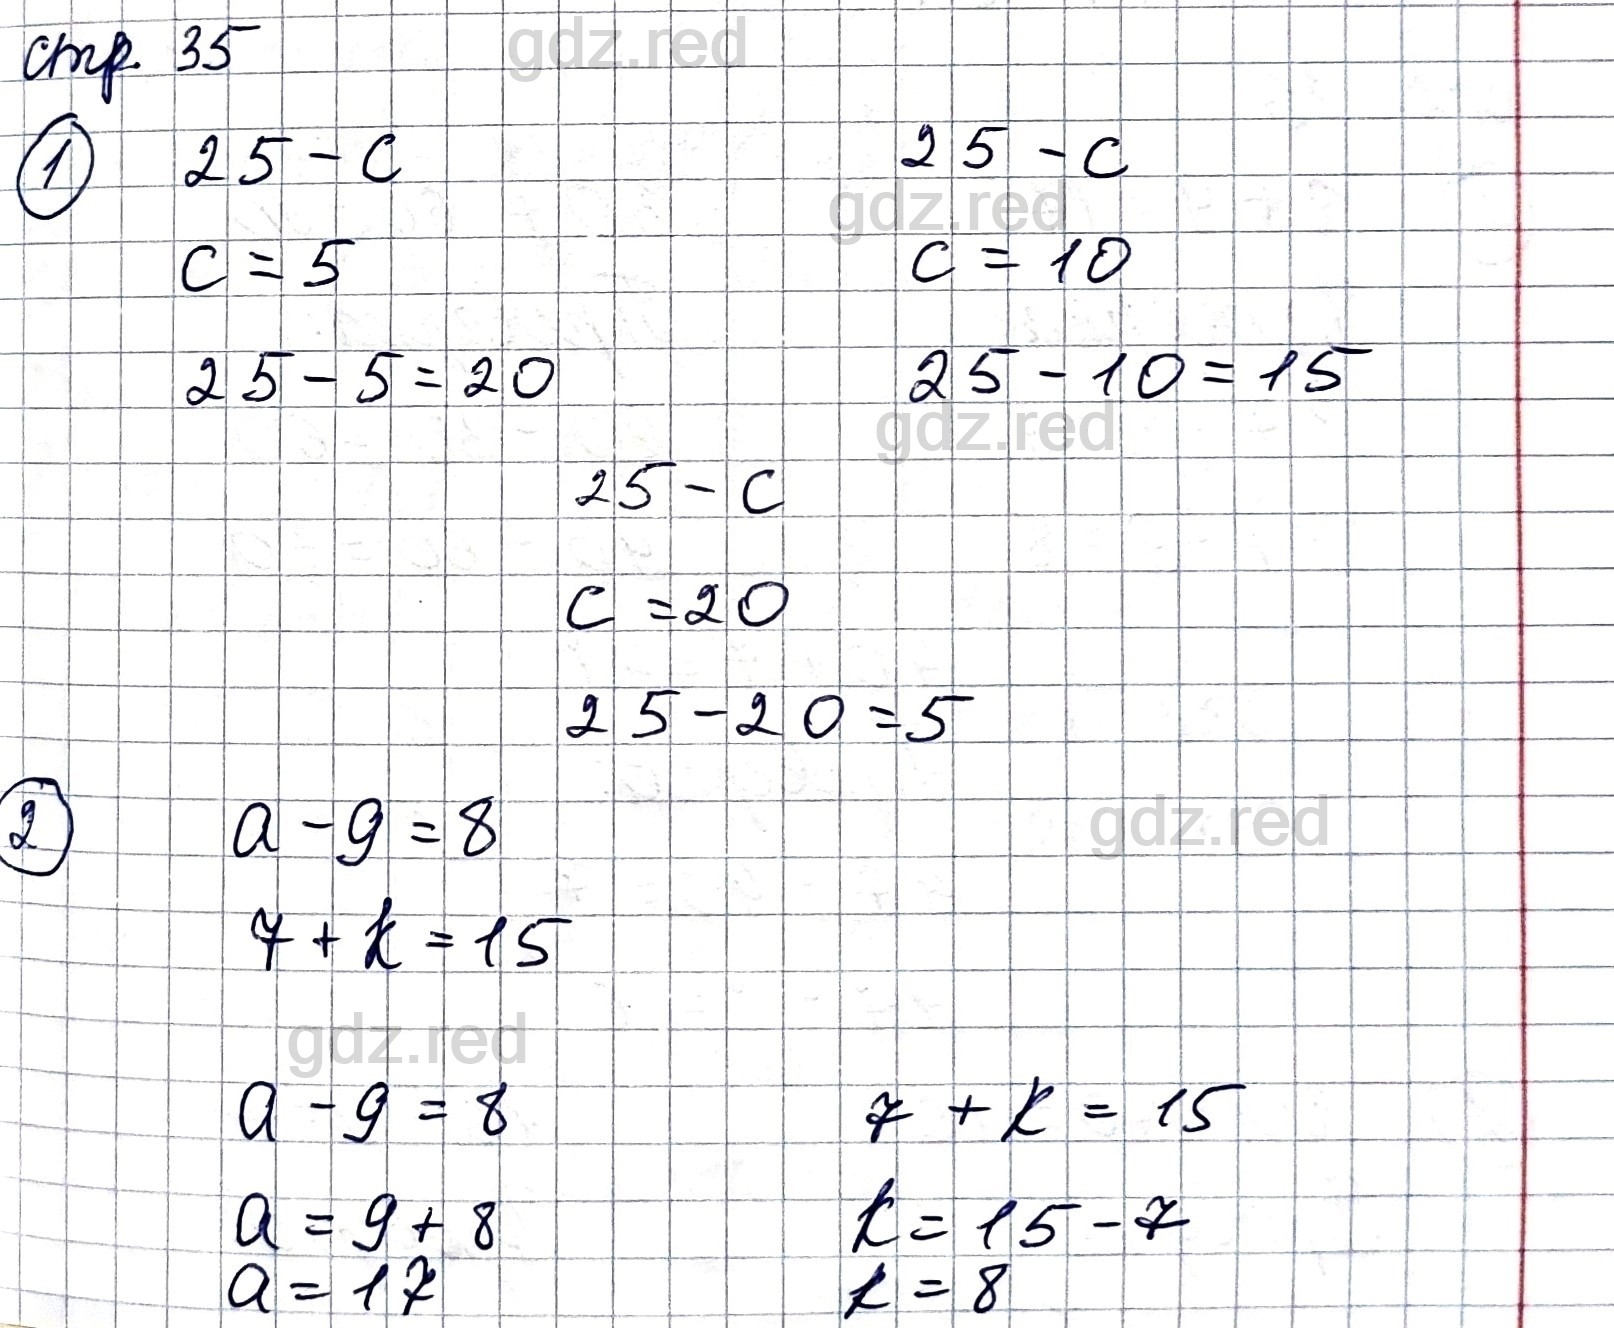 стр. 35
gdz.red
1 25 - c 25 - c
gdz.red
c = 5 c = 10
25 - 5 = 20 25 - 10 = 15
gdz.red
25 - c
c = 20
25 - 20 = 5
2 a - 9 = 8
gdz.red
7 + k = 15
gdz.red
a - 9 = 8 7 + k = 15
a = 9 + 8 k = 15 - 7
a = 17 k = 8